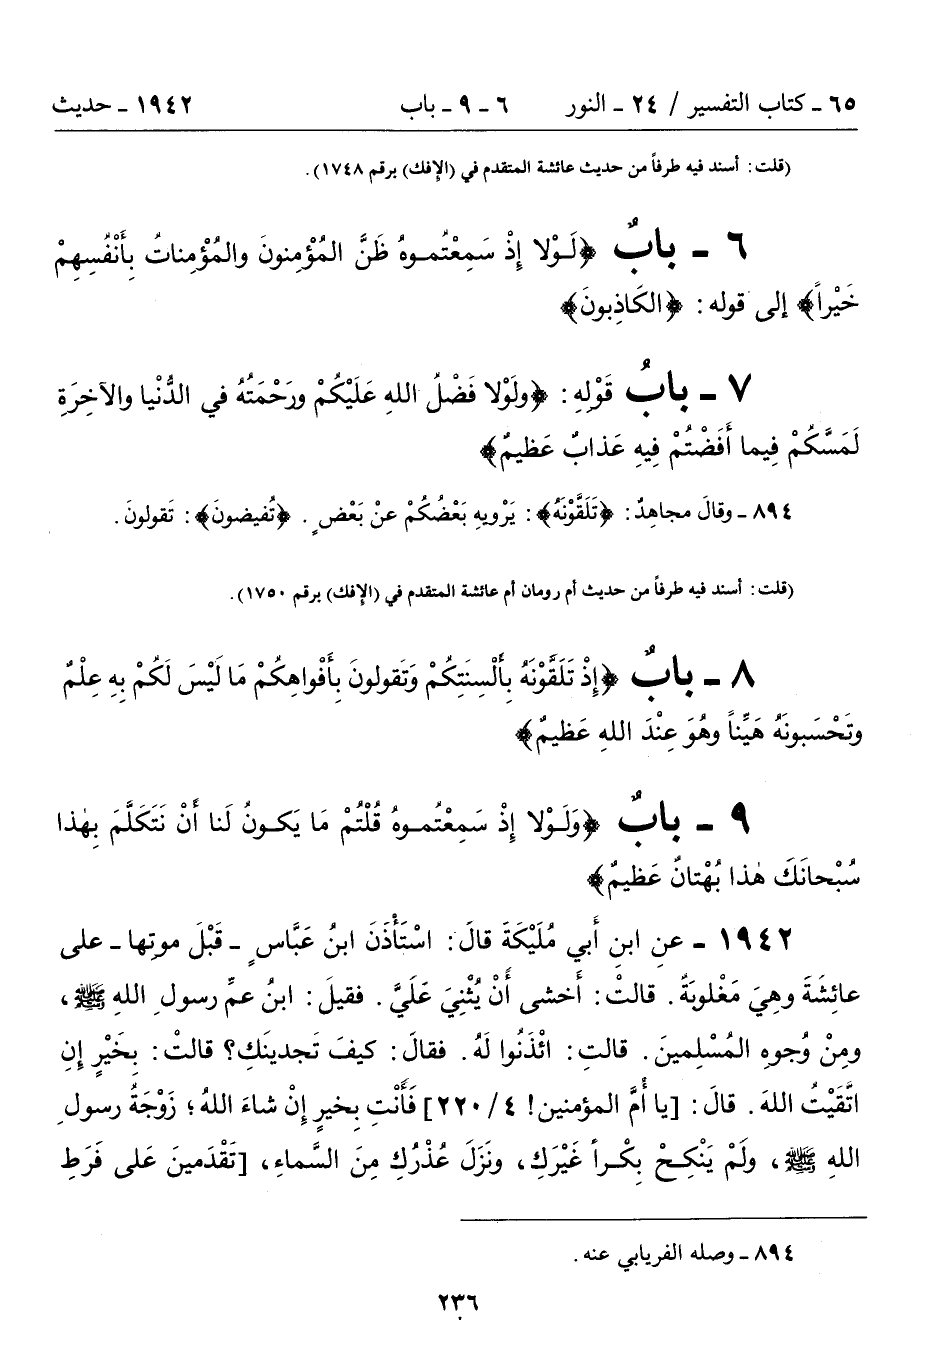 ٦٥ ـ كتاب التفسير / ٢٤ ـ النور ٦ ـ ٩ ـ باب ١٩٤٢ ـ حديث
(قلت: أسند فيه طرفاً من حديث عائشة المتقدم في (الإفك) برقم ١٧٤٨).
٦ ـ بابٌ ﴿لَـوْلا إِذْ سَمِعْتُمـوهُ ظَنَّ المُؤْمِنونَ والمُؤْمِناتُ بِأَنْفُسِهِمْ
خَيْراً﴾ إلى قوله: ﴿الكَاذِبونَ﴾
٧ ـ بابُ قَوْلِهِ: ﴿ولَوْلا فَضْلُ اللهِ عَلَيْكُمْ ورَحْمَتُهُ في الدُّنْيا والآخِرَةِ
لَمَسَّكُمْ فِيما أَفَضْتُمْ فِيهِ عَذابٌ عَظيمٌ﴾
٨٩٤ ـ وقالَ مجاهِدٌ: ﴿تَلَقَّوْنَهُ﴾: يَرْويهِ بَعْضُكُمْ عنْ بَعْضٍ. ﴿تُفيضونَ﴾: تَقولونَ.
(قلت: أسند فيه طرفاً من حديث أم رومان أم عائشة المتقدم في (الإفك) برقم ١٧٥٠).
٨ ـ بابٌ ﴿إِذْ تَلَقَّوْنَهُ بِأَلْسِنَتِكُمْ وَتَقولونَ بِأَفْواهِكُمْ مَا لَيْسَ لَكُمْ بِهِ عِلْمٌ
وتَحْسَبونَهُ هَيِّناً وهُوَ عِنْدَ اللهِ عَظيمٌ﴾
٩ ـ بابٌ ﴿وَلَـوْلا إِذْ سَمِعْتُمـوهُ قُلْتُمْ مَا يَكـونُ لَنا أَنْ نَتَكَلَّمَ بِهٰذا
سُبْحانَكَ هٰذا بُهْتانٌ عَظيمٌ﴾
١٩٤٢ ـ عنِ ابنِ أَبي مُلَيْكَةَ قالَ: اسْتَأْذَنَ ابنُ عَبَّاسٍ ـ قَبْلَ موتِها ـ على
عائِشَةَ وهِيَ مَغْلوبَةٌ. قالتْ: أَخشى أَنْ يُثْنِيَ عَلَيَّ. فقيلَ: ابنُ عمِّ رسولِ اللهِ ﷺ،
ومِنْ وُجوهِ المُسْلِمينَ. قالتِ: ائْذَنُوا لَهُ. فقالَ: كيفَ تَجدينَكِ؟ قالتْ: بِخَيْرٍ إِنِ
اتَّقَيْتُ اللهَ. قالَ: [يا أُمَّ المؤمنين! ٤/ ٢٢٠] فَأَنْتِ بِخيرٍ إِنْ شاءَ اللهُ؛ زَوْجَةُ رسولِ
اللهِ ﷺ، ولَمْ يَنْكِـحْ بِكْـراً غَيْرَكِ، ونَزَلَ عُذْرُكِ مِنَ السَّماءِ، [تَقْدَمينَ عَلى فَرَطِ
٨٩٤ ـ وصله الفريابي عنه.
٢٣٦